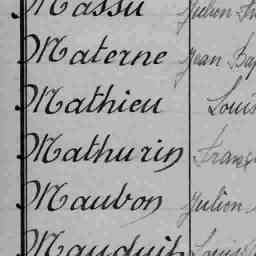 Massu Julien
Materne Jean Bap
Mathieu Louis
Mathurin Franç
Maubon Julien
Mauduit Louis